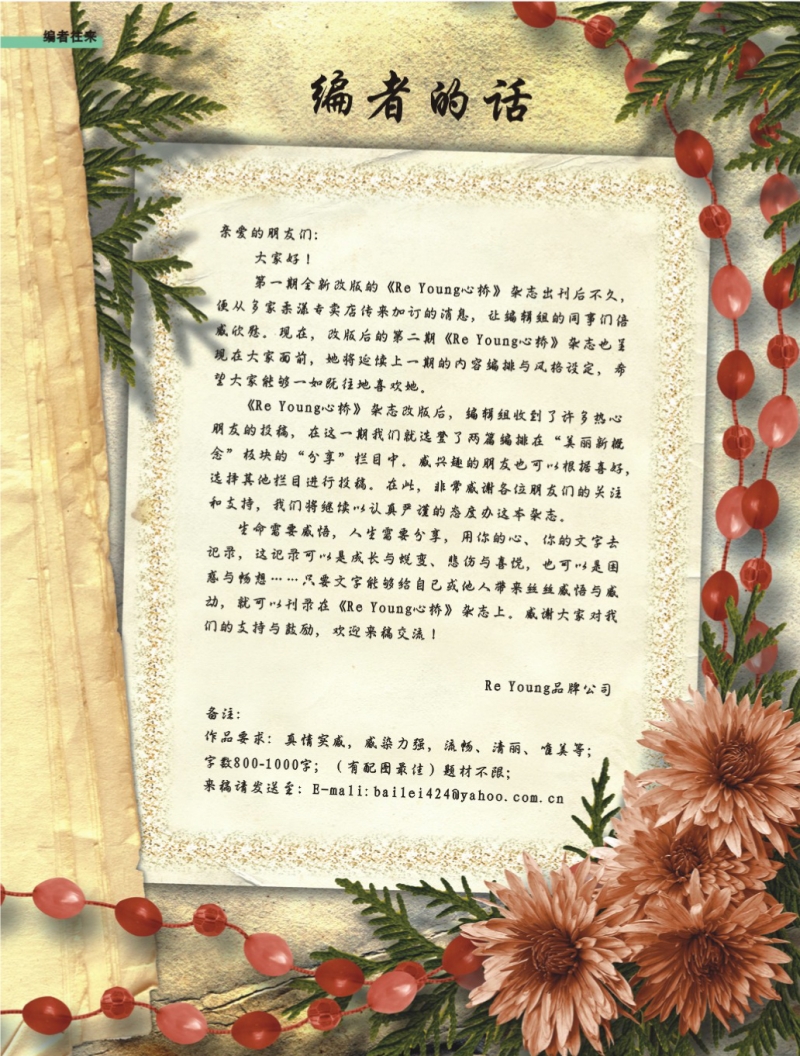 编者往来
编者的话
亲爱的朋友们：
大家好！
第一期全新改版的《Re Young心桥》杂志出刊后不久，
便从多家柔漾专卖店传来加订的消息，让编辑组的同事们倍
感欣慰。现在，改版后的第二期《Re Young心桥》杂志也呈
现在大家面前，她将延续上一期的内容编排与风格设定，希
望大家能够一如既往地喜欢她。
《Re Young心桥》杂志改版后，编辑组收到了许多热心
朋友的投稿，在这一期我们就选登了两篇编排在“美丽新概
念”板块的“分享”栏目中。感兴趣的朋友也可以根据喜好，
选择其他栏目进行投稿。在此，非常感谢各位朋友们的关注
和支持，我们将继续以认真严谨的态度办这本杂志。
生命需要感悟，人生需要分享，用你的心、你的文字去
记录，这记录可以是成长与蜕变、悲伤与喜悦，也可以是困
惑与畅想……只要文字能够给自己或他人带来丝丝感悟与感
动，就可以刊录在《Re Young心桥》杂志上。感谢大家对我
们的支持与鼓励，欢迎来稿交流！
Re Young品牌公司
备注：
作品要求：真情实感，感染力强，流畅、清丽、唯美等；
字数800-1000字；（有配图最佳）题材不限；
来稿请发送至：E-mali:bailei424@yahoo.com.cn